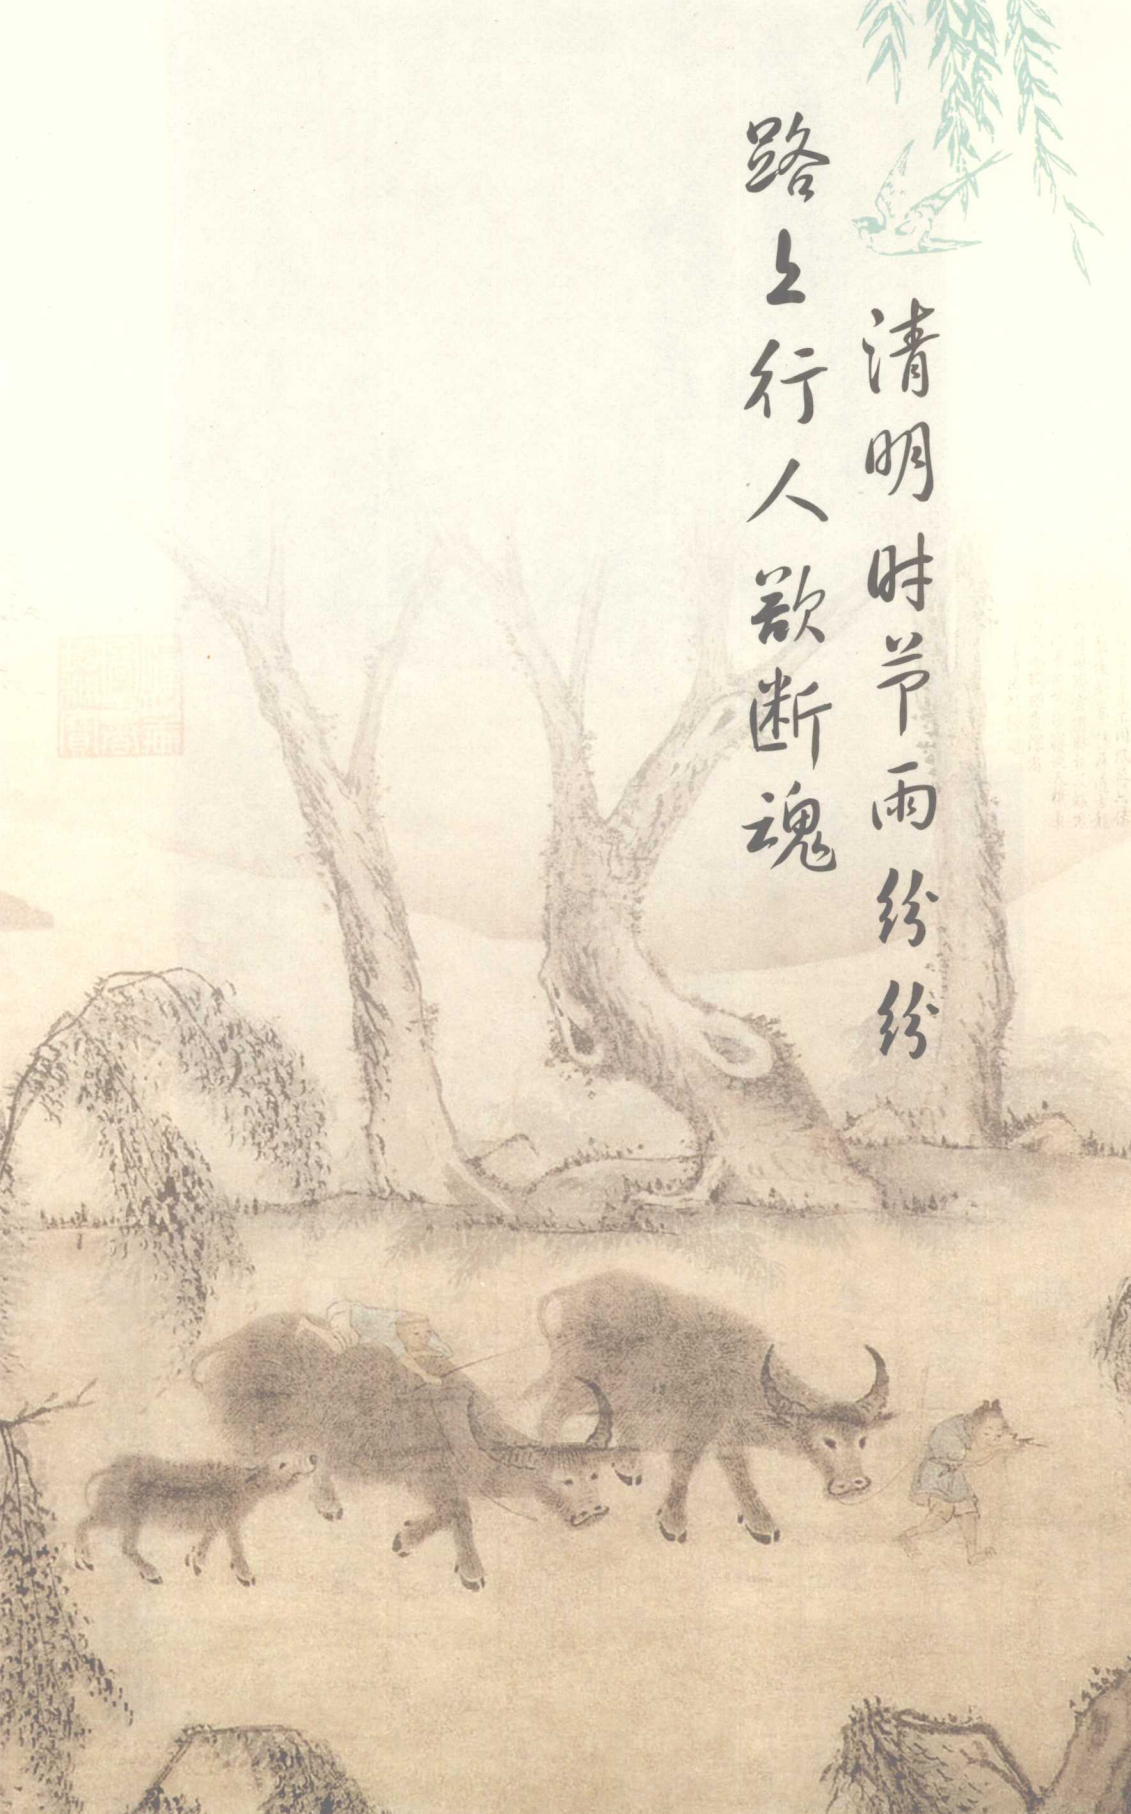 清明时节雨纷纷
路上行人欲断魂